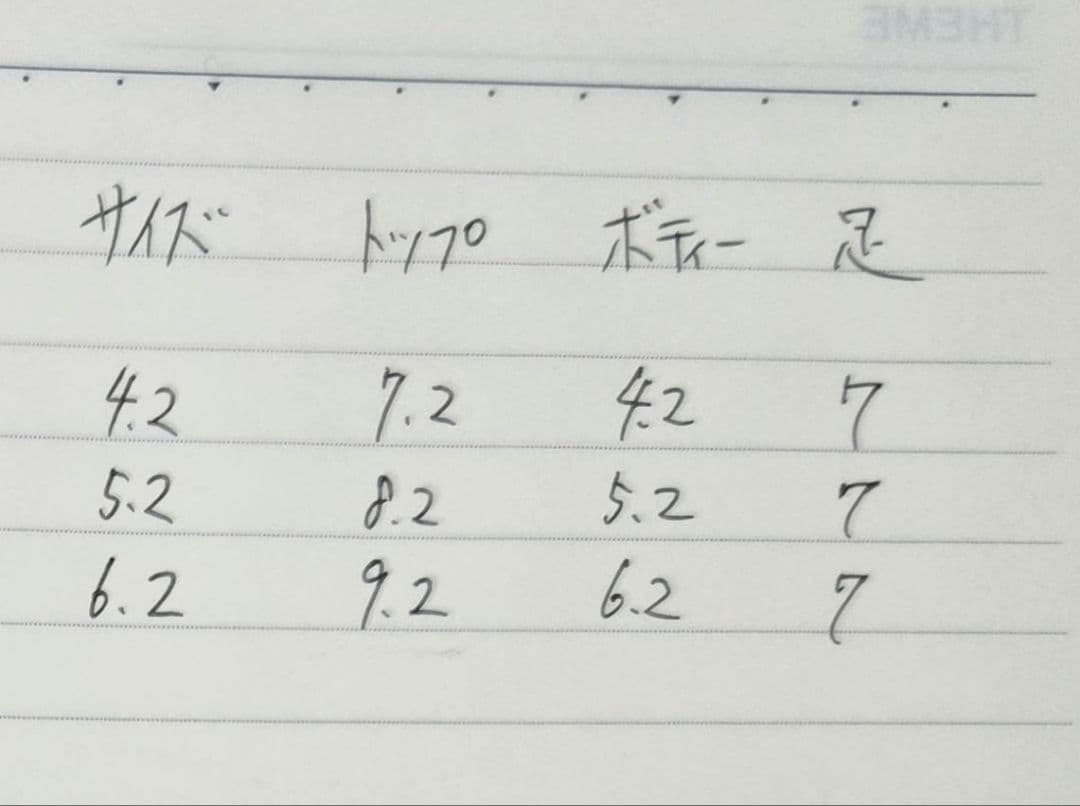 THEME
サイズ トップ ボディー 足
4.2 7.2 4.2 7
5.2 8.2 5.2 7
6.2 9.2 6.2 7